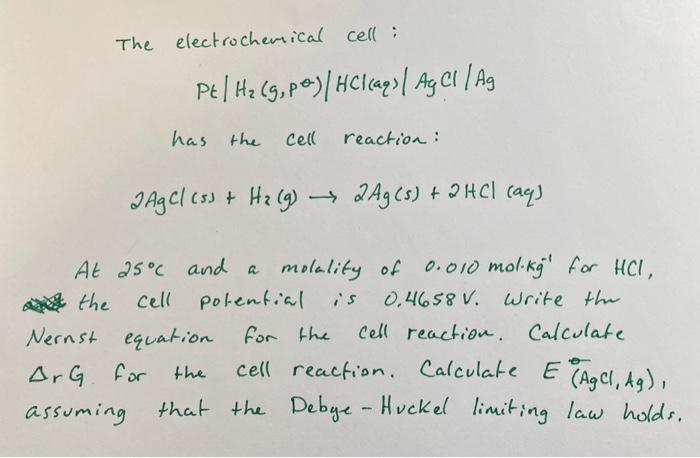 The electrochemical cell :
Pt | H₂ (g, p⦵) | HCl(aq) | AgCl | Ag
has the cell reaction :
2AgCl (s) + H₂ (g) → 2Ag(s) + 2HCl (aq)
At 25°C and a molality of 0.010 mol·kg⁻¹ for HCl,
the cell potential is 0.4658 V. Write the
Nernst equation for the cell reaction. Calculate
ΔrG for the cell reaction. Calculate E⦵(AgCl, Ag),
assuming that the Debye - Huckel limiting law holds.